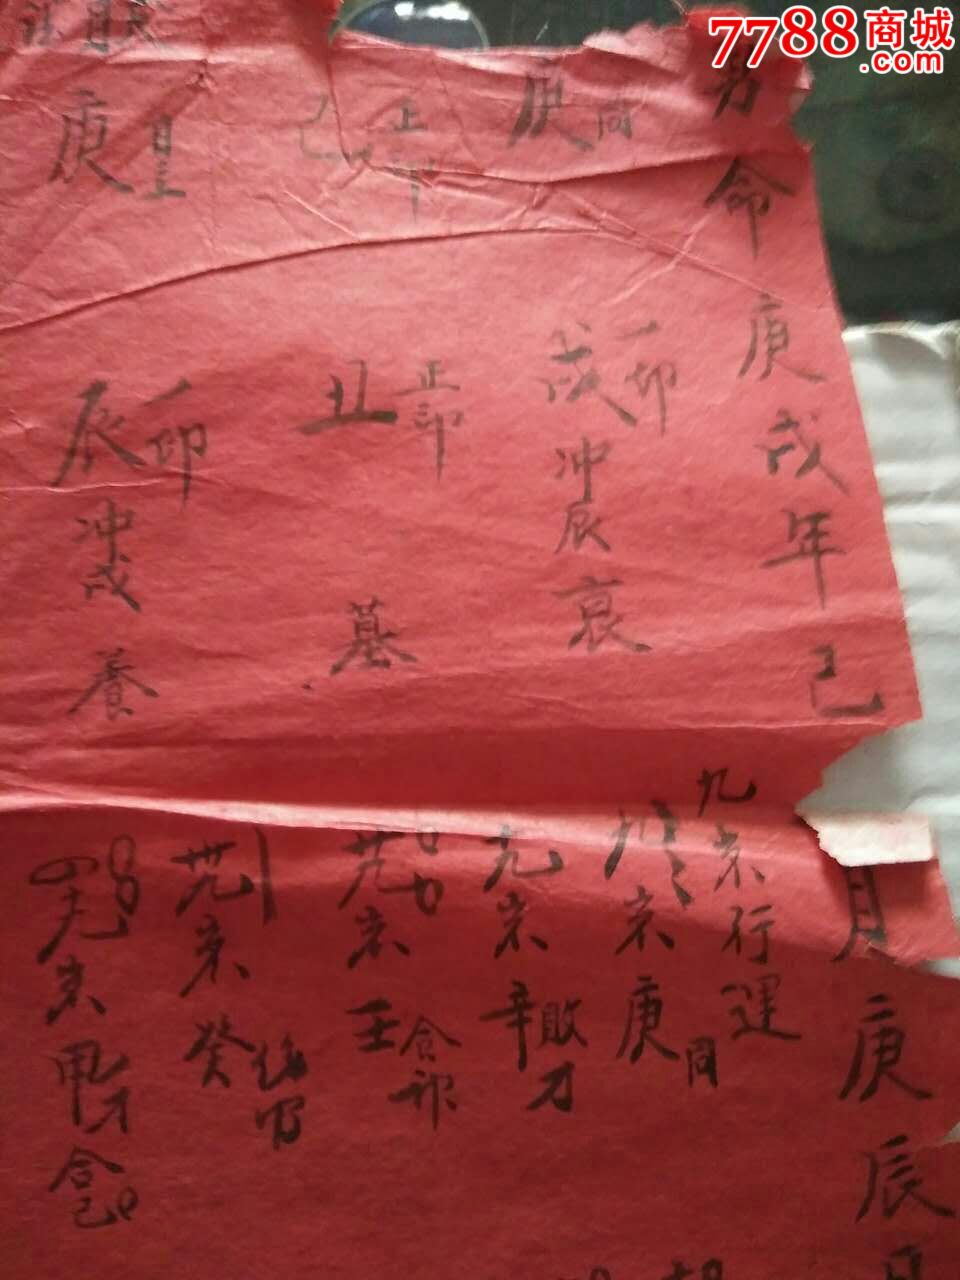 7788商城
.com
男命庚戌年己
月庚辰
庚同
戌一印
冲辰衰
己正印
丑正印
墓
庚日主
辰一印
冲戌养
九岁行运
九岁庚同
十九岁辛败才
廿九岁壬食神
卅九岁癸伤官
四十九岁甲才
合己